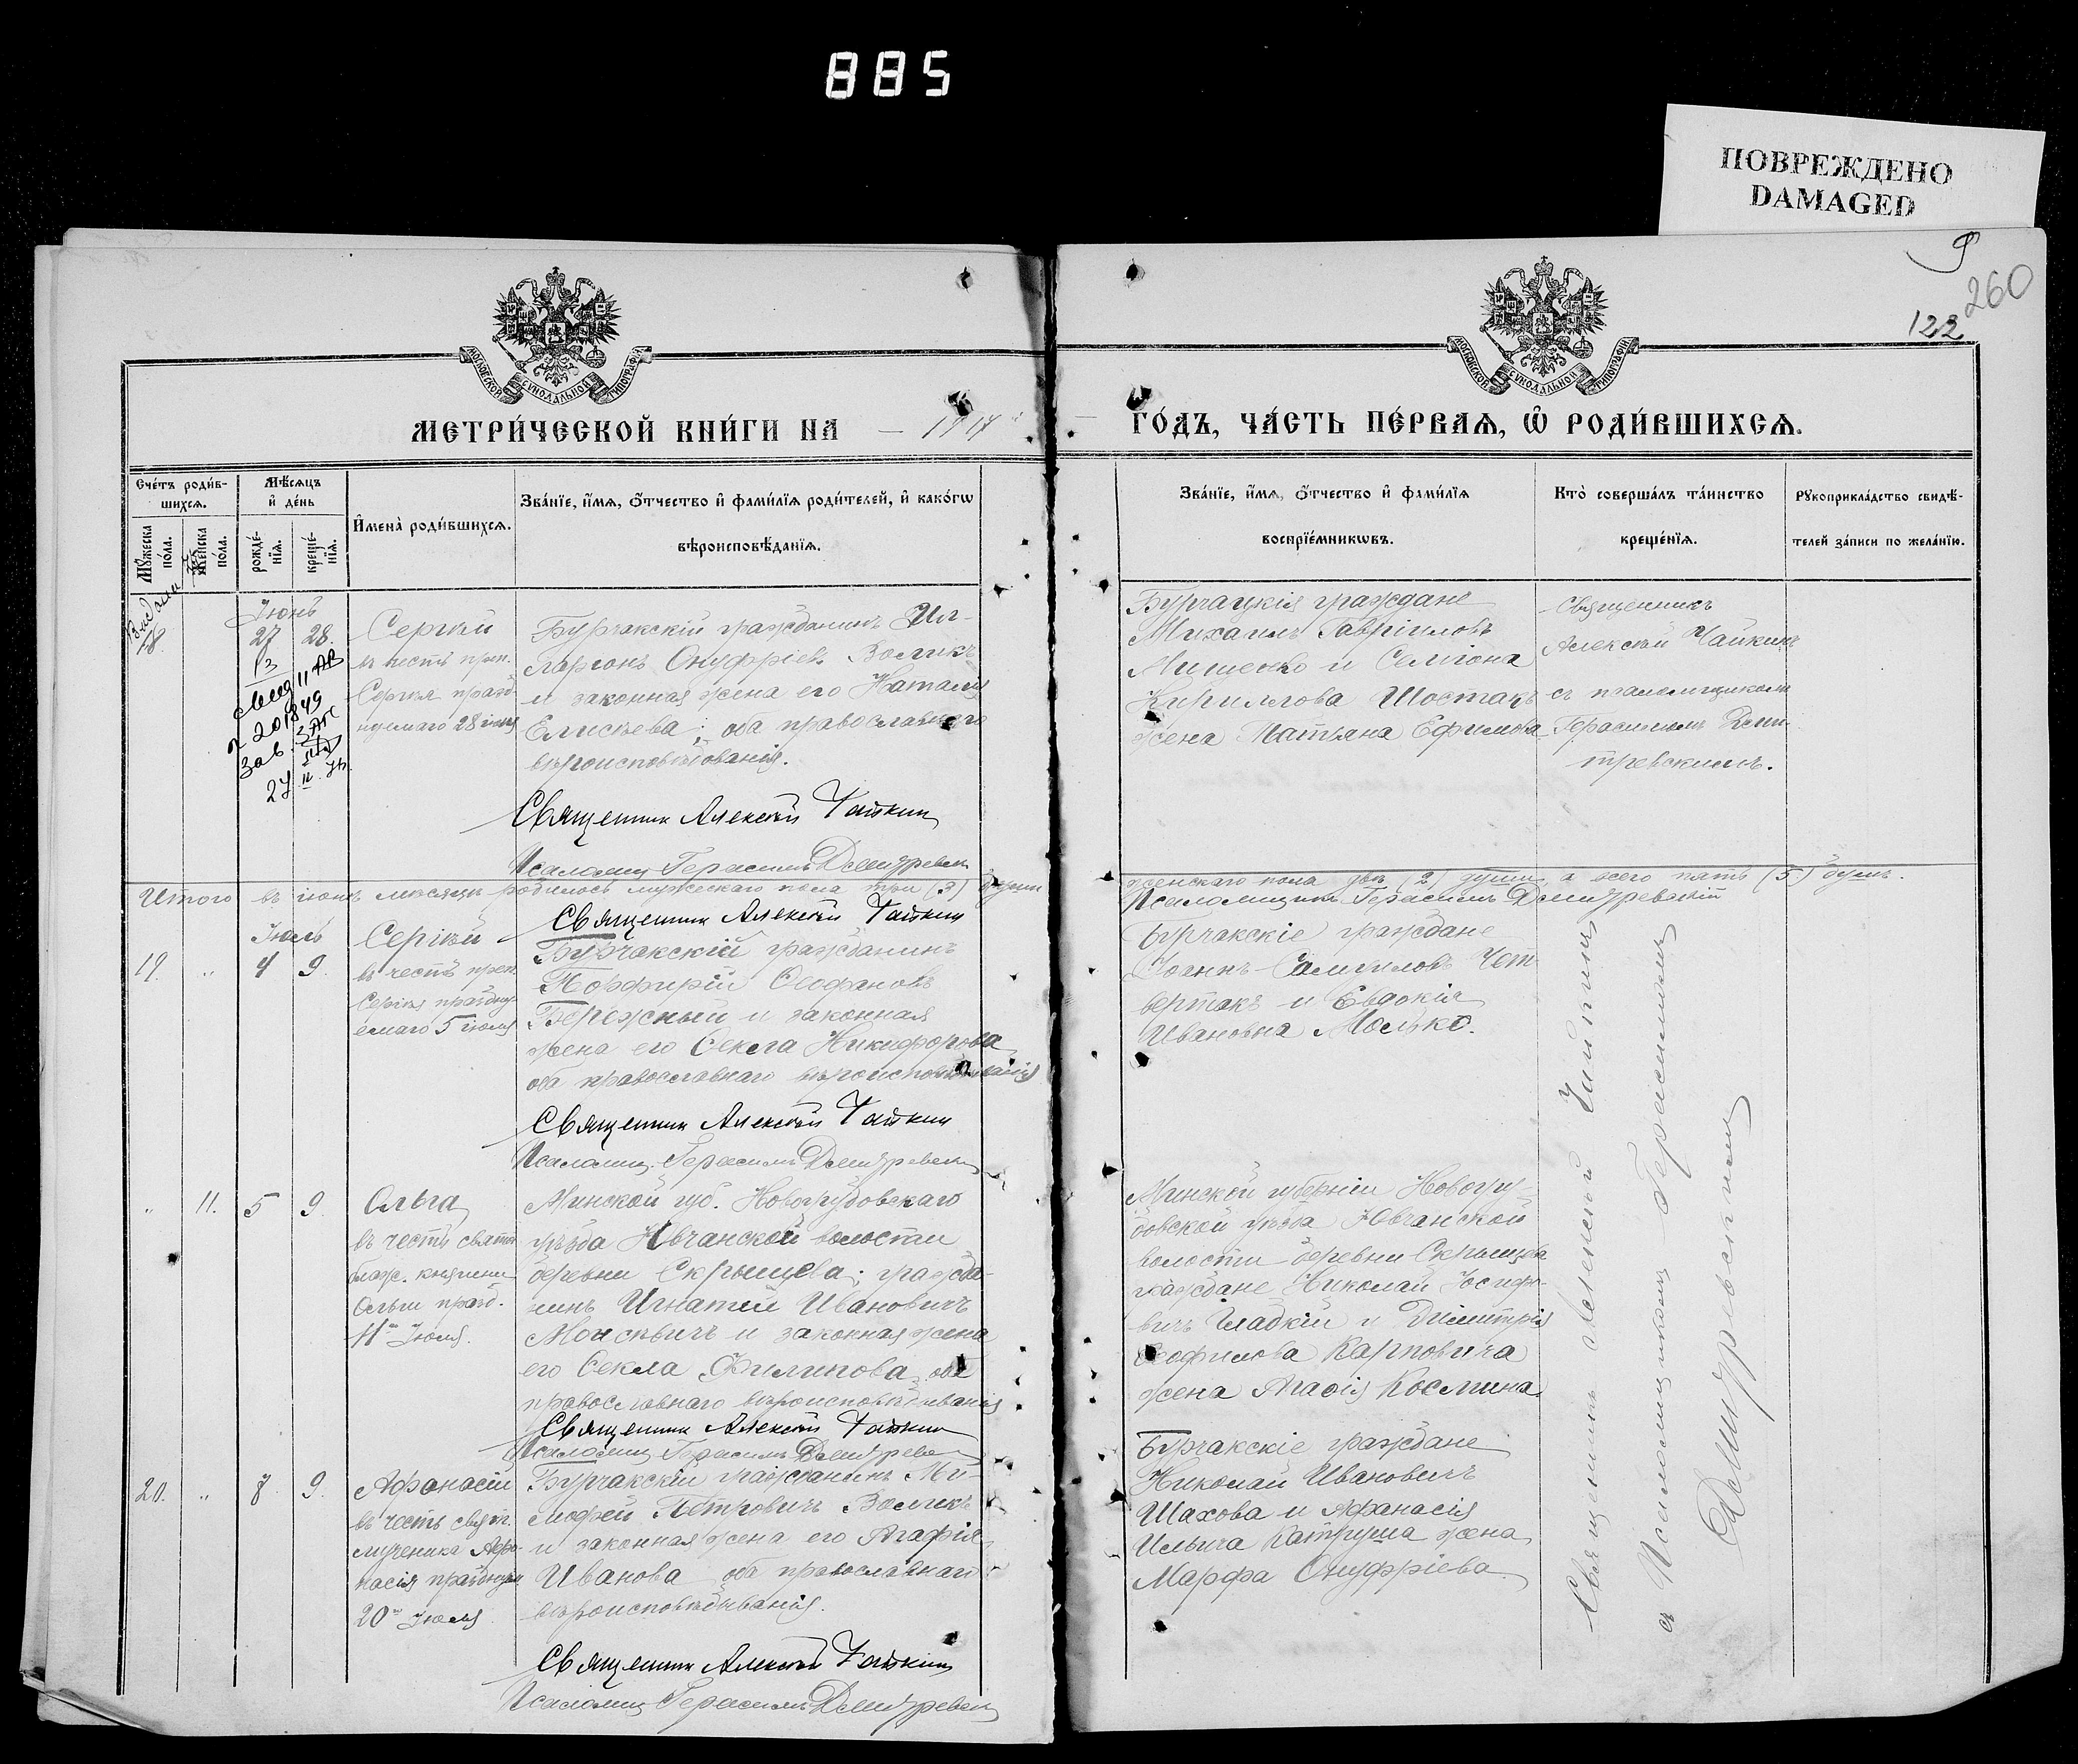 885
ПОВРЕЖДЕНО
DAMAGED
9
260
122
МОСКОВСКОЙ СѴНОДАЛЬНОЙ ТИПОГРАФІИ
МОСКОВСКОЙ СѴНОДАЛЬНОЙ ТИПОГРАФІИ
МЕТРИ́ЧЕСКОЙ КНИ́ГИ НА 1917
ГО́ДЪ, ЧА́СТЬ ПЕ́РВАѦ, Ѽ РОДИ́ВШИХСѦ.
Сче́тъ роди́в-
шихсѧ.
Мꙋ́жеска
по́ла.
Же́нска
по́ла.
Мѣ́сѧцъ
и҆ де́нь
рожде́-
нїѧ.
креще́-
нїѧ.
И҆мена̀ роди́вшихсѧ.
Зва́нїе, и҆́мѧ, ѻ҆́тчество и҆ фами́лїѧ роди́телей, и҆ како́гѡ
вѣроисповѣ́данїѧ.
Зва́нїе, и҆́мѧ, ѻ҆́тчество и҆ фами́лїѧ
воспрїе́мникѡвъ.
Кто̀ соверша́лъ та́инство
креще́нїѧ.
Рꙋкоприкла́дство свидѣ́-
телей за́писи по жела́нїю.
18.
Іюнь
27 28.
Сергѣй
въ честь преп.
Сергія празд-
нуемаго 28 іюня
Бурчакскій гражданинъ Ил-
ларіонъ Онуфріевъ Воликъ
и законная жена его Наталія
Елисѣева; оба православнаго
вѣроисповѣдованія.
Священникъ Алексѣй Чайкинъ
Псаломщ. Герасимъ Демитревск
Бурчацкія граждане
Михаилъ Гавріиловъ
Мищенко и Семіона
Кириллова Шостакъ
жена Татьяна Ефимова
Священникъ
Алексѣй Чайкинъ
съ псаломщикомъ
Герасимомъ Деми-
тревскимъ.
Итого въ іюнѣ мѣсяцѣ родилось мужескаго пола три (3) души
женскаго пола двѣ (2) души, а всего пять (5) душъ.
Священникъ Алексѣй Чайкинъ
Псаломщикъ Герасимъ Демитревскій
19. „
Іюль
4 9
Сергѣй
въ честь преп.
Сергія праздну-
емаго 5 іюля
Бурчакскій гражданинъ
Порфирій Ѳеофановъ
Бережный и законная
жена его Ѳекла Никифорова
оба православнаго вѣроисповѣданія
Священникъ Алексѣй Чайкинъ
Псаломщ. Герасимъ Демитревск
Бурчакскіе граждане
Іоаннъ Самуиловъ Чет-
вертакъ и Евдокія
Ивановна Молько.
„ 11. 5 9
Ольга
въ честь святой
блаж. княгини
Ольги празд.
11го Іюля.
Минской губ. Новогрудовскаго
уѣзда Ювчанской волости
деревни Скрышева; гражда-
нинъ Игнатій Ивановичъ
и законная жена
его Ѳекла Филипова, оба
православнаго вѣроисповѣдыванія
Священникъ Алексѣй Чайкинъ
Псаломщ. Герасимъ Демитревск
Минской губерніи Новогру-
довской уѣзда Ювчанской
волости деревни Скрышева
граждане Николай Іосифо-
вичъ Гладкій и Димитрія
Ѳеофилова Карповича
жена Агафія Космина
20. „ 8 9
Афанасій
въ честь свящ.
мученика Афа-
насія празднуем
20го Іюля
Бурчакскій гражданинъ Ти-
мофей Петровичъ Воликъ
и законная жена его Агафія
Иванова оба православнаго
вѣроисповѣдыванія.
Священникъ Алексѣй Чайкинъ
Псаломщ. Герасимъ Демитревск
Бурчакскіе граждане
Николай Ивановичъ
Шахова и Афанасія
Ильича Катруша жена
Марфа Онуфріева
Священникъ Алексѣй Чайкинъ
съ Псаломщикомъ Герасимомъ
Демитревскимъ